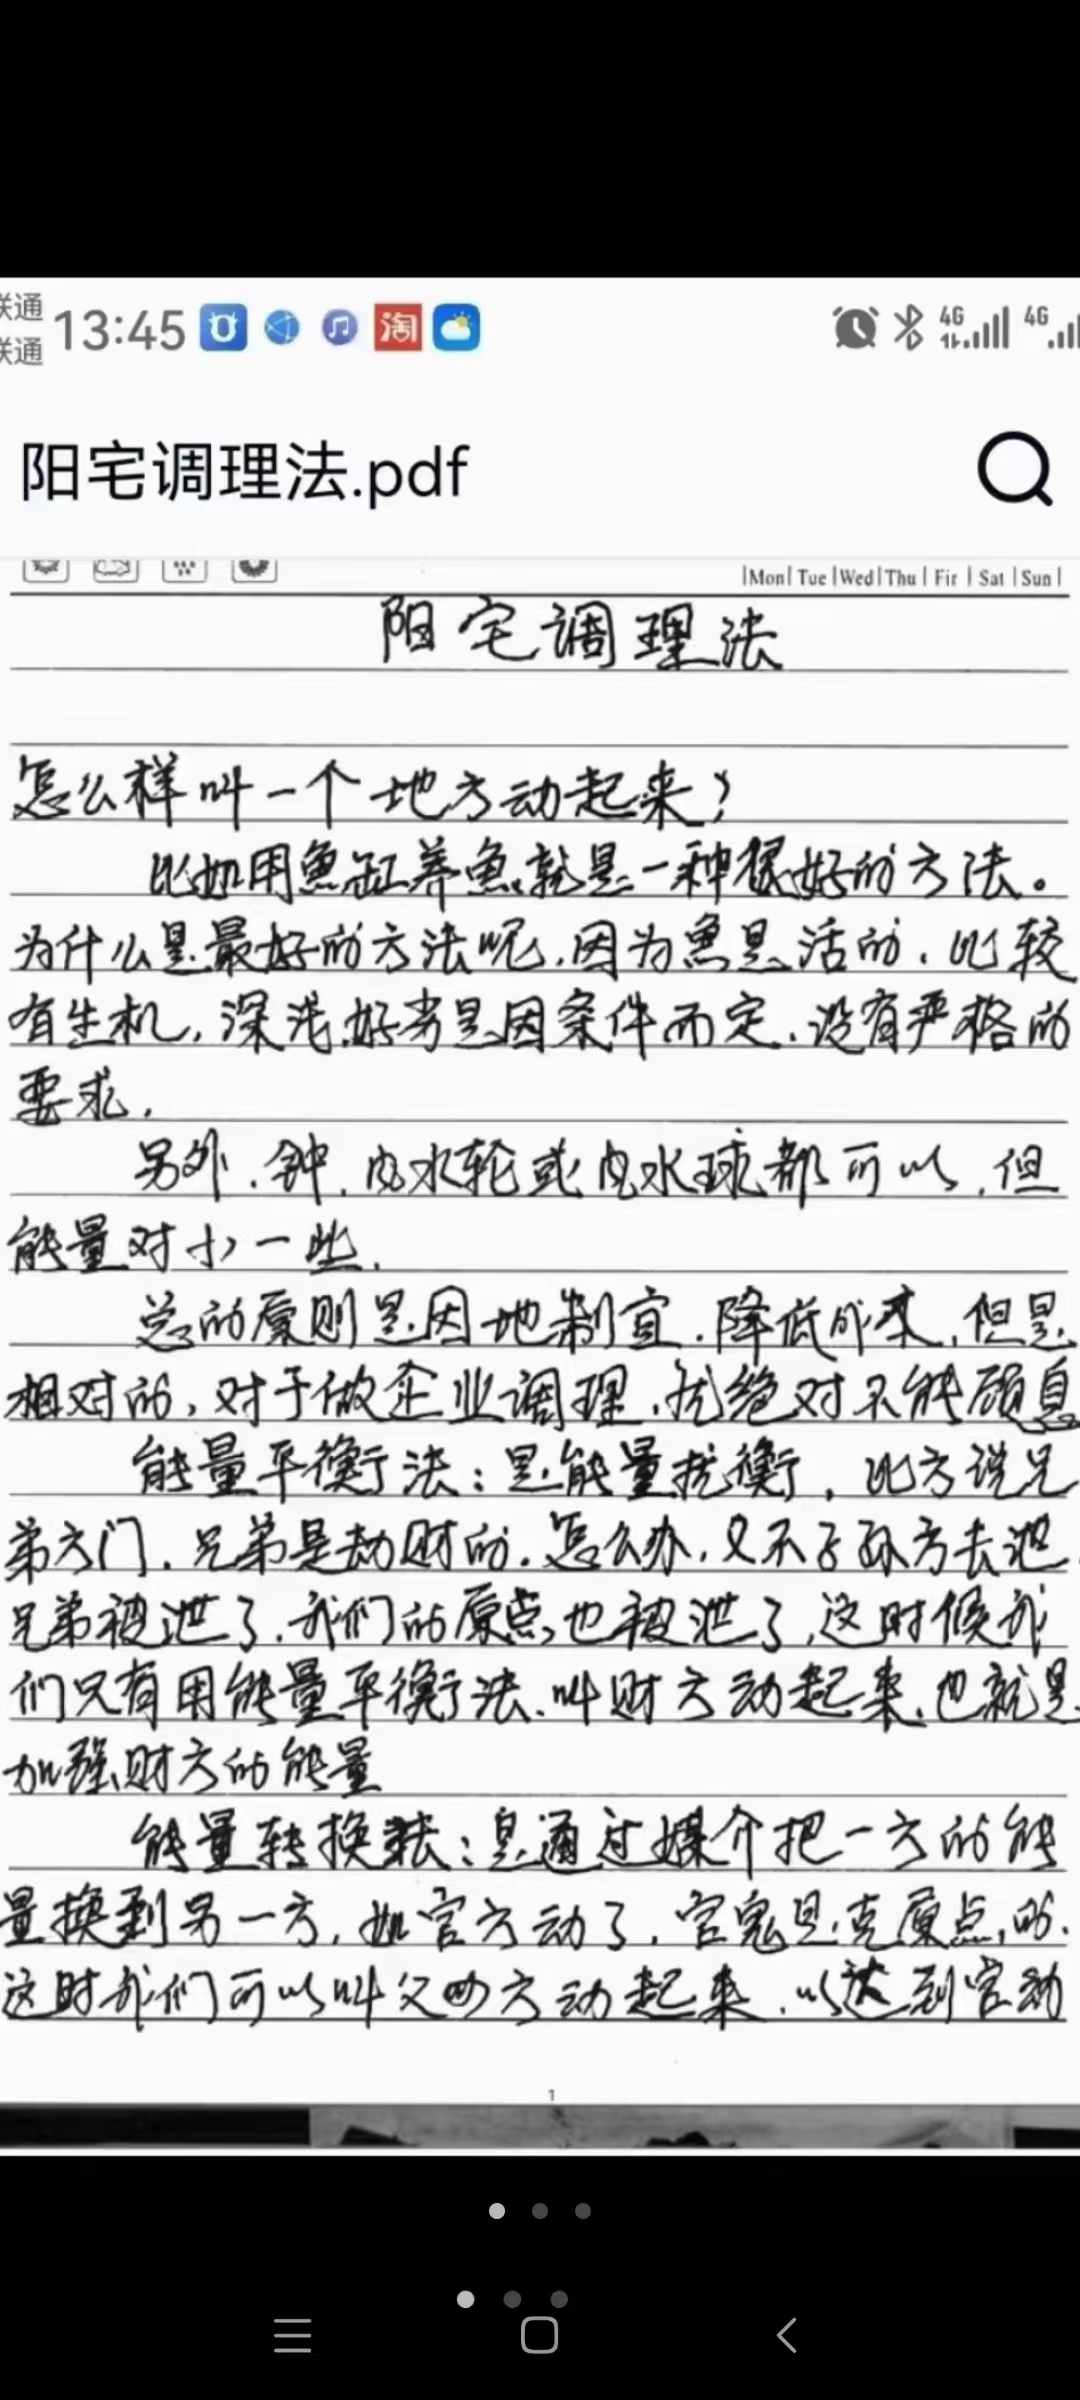 联通
联通
13:45
淘
4G
4G
阳宅调理法.pdf
Mon Tue Wed Thu Fir Sat Sun
阳宅调理法
怎么样叫一个地方动起来?
比如用鱼缸养鱼就是一种很好的方法。
为什么是最好的方法呢,因为鱼是活的,比较
有生机,深浅,好劣是因条件而定,没有严格的
要求,
另外,钟,风水轮或风水球都可以,但
能量对小一些,
总的原则是因地制宜,降低成本,但是
相对的,对于做企业调理,绝对不能
能量平衡法:是能量抗衡,比方说兄
弟方门,兄弟是劫财的,怎么办,又不子孙方去泄,
兄弟被泄了,我们的原点也被泄了,这时候我
们只有用能量平衡法,叫财方动起来,也就是
加强财方的能量
能量转换法:是通过媒介把一方的能
量换到另一方,如官方动了,官鬼是克原点的,
这时我们可以叫父母方动起来,以达到官动
1